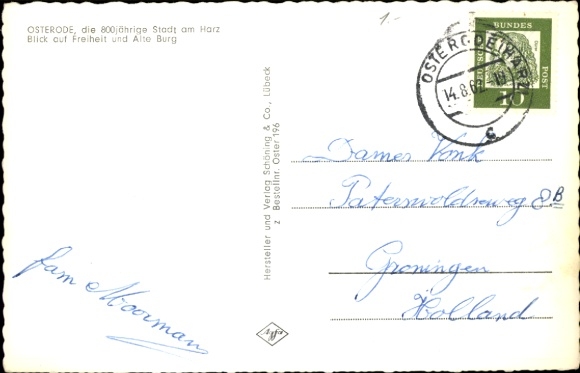 OSTERODE, die 800jährige Stadt am Harz
Blick auf Freiheit und Alte Burg
1.-
BUNDES
POST
10
OSTERODE (HARZ)
14.8.62
c
Hersteller und Verlag Schöning & Co., Lübeck
z Bestellnr. Oster 196
Dames Vonk
Paterswoldseweg 8B
Groningen
Holland
fam Moorman